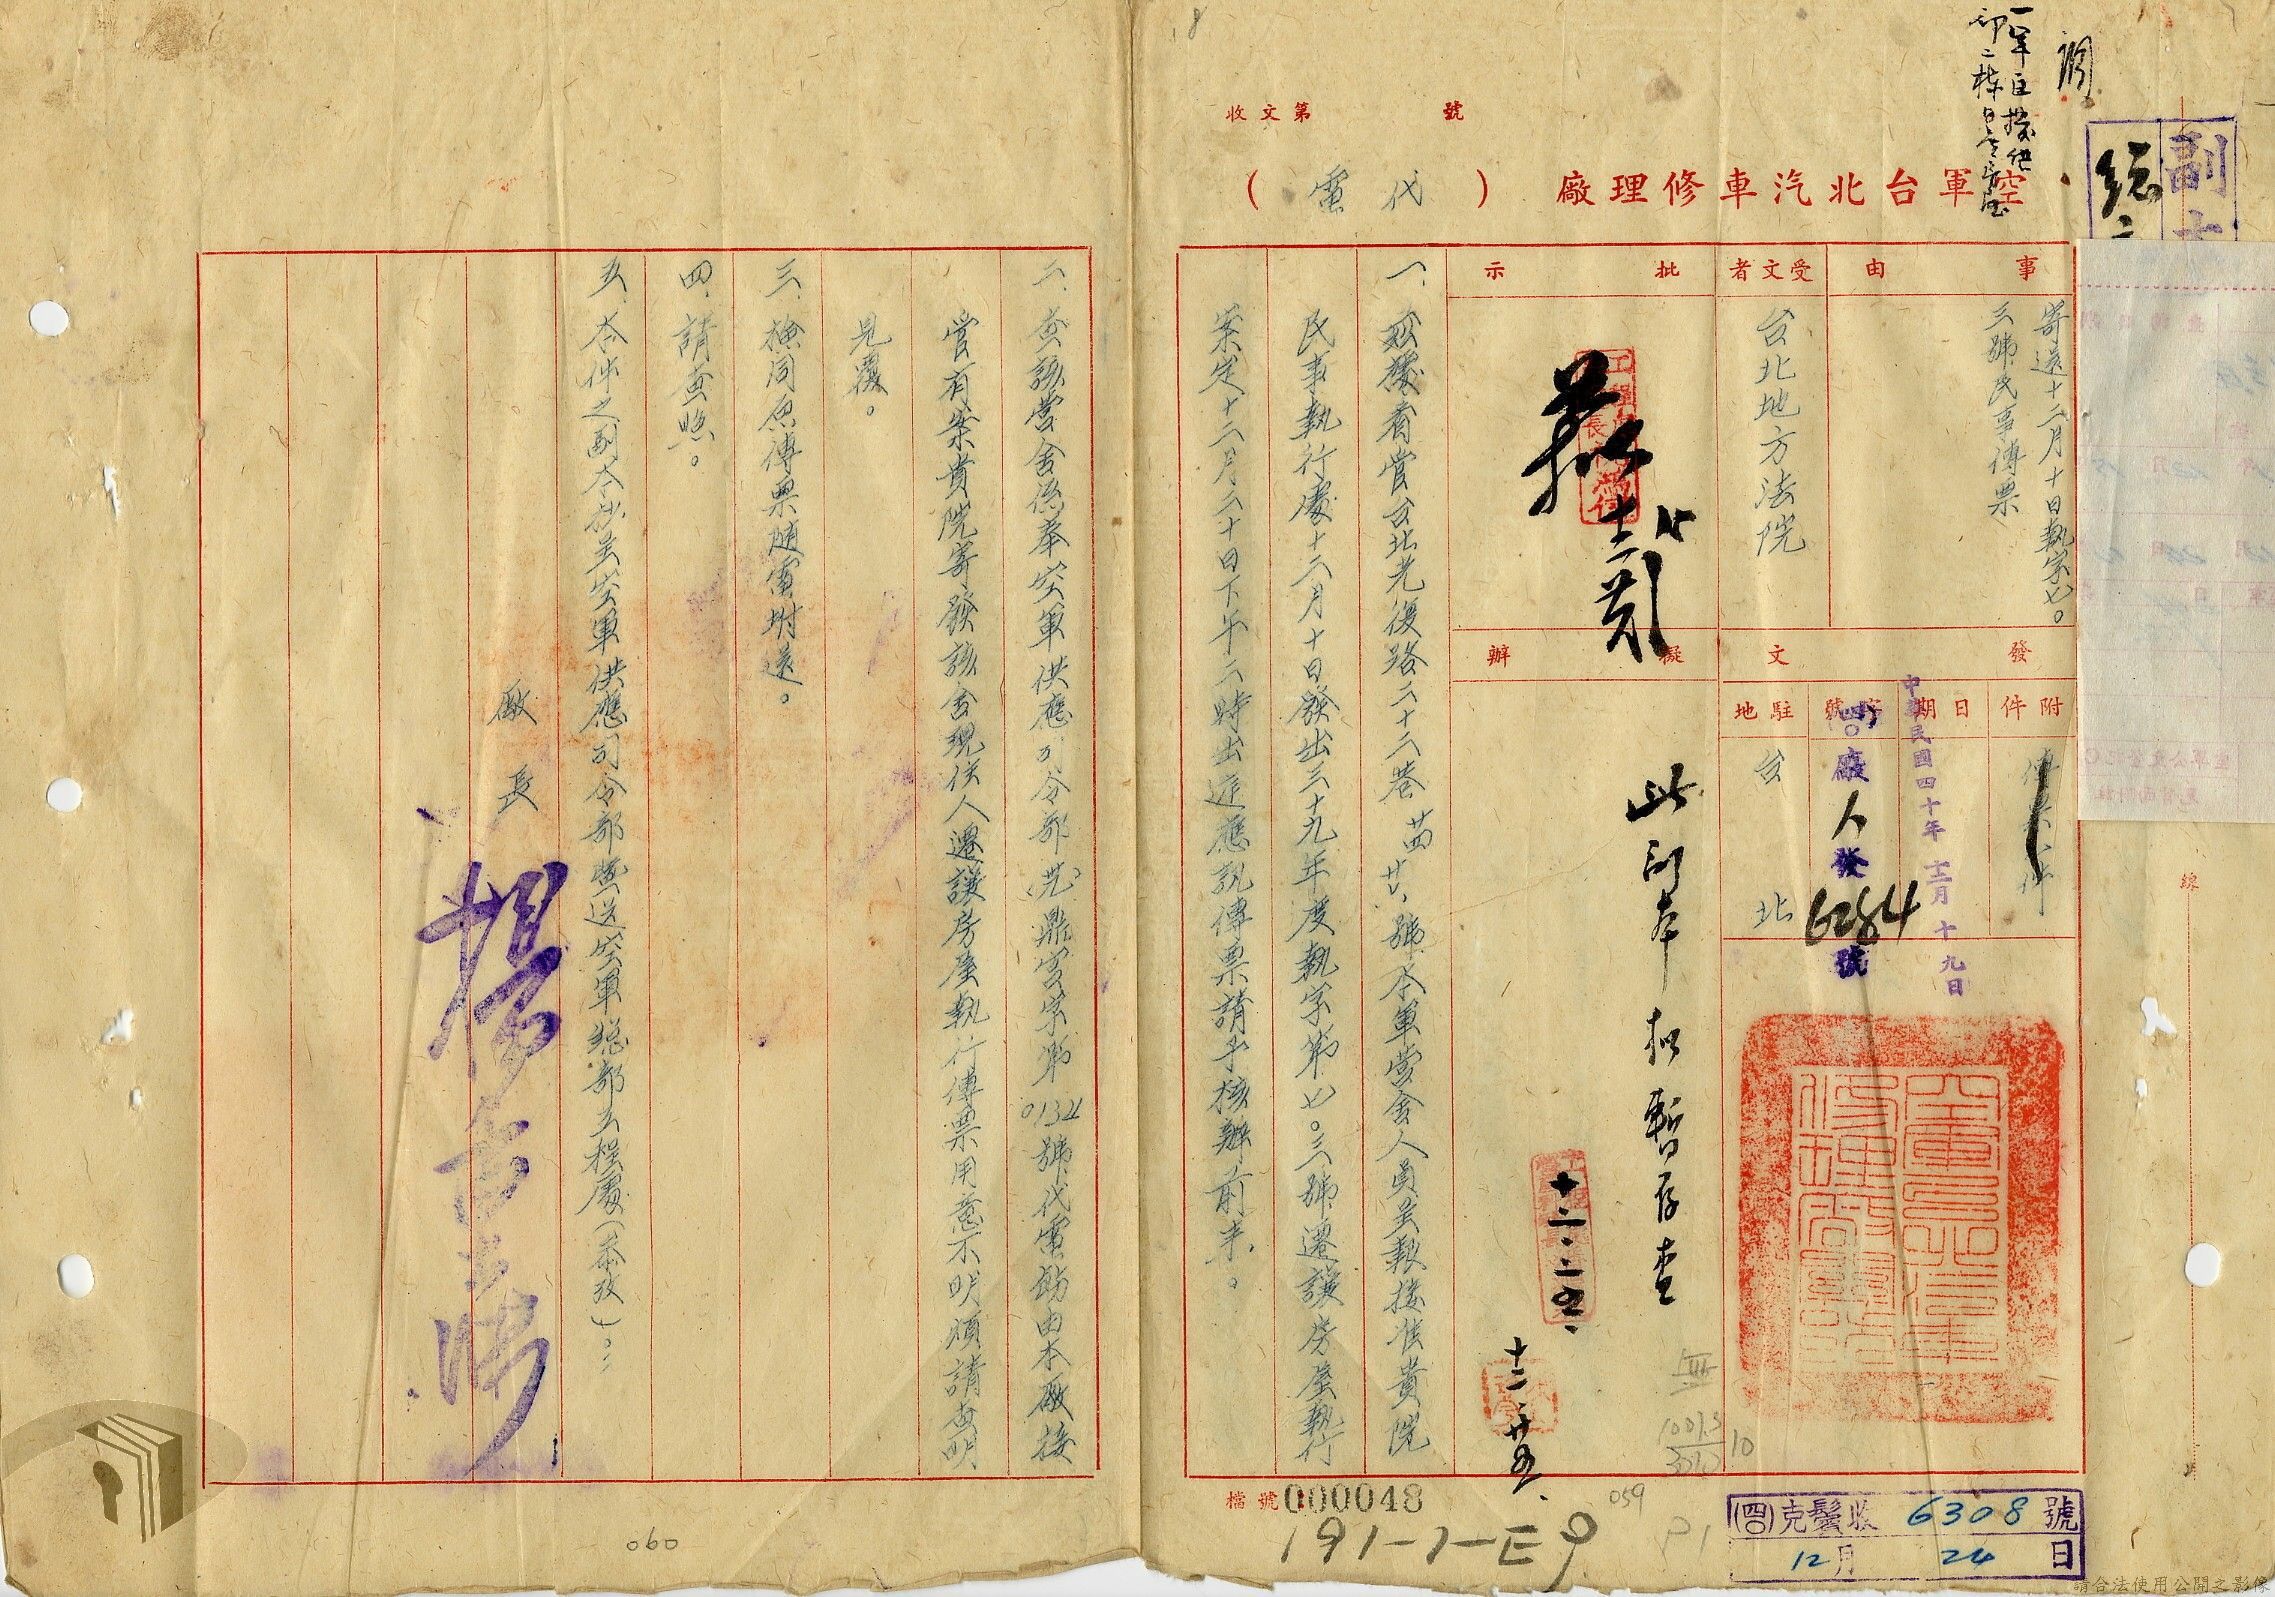 副
收文第　　　號
空軍台北汽車修理廠（代電）
事由
寄還十二月十日執字七〇
三號民事傳票
受文者
台北地方法院
批示
擬辦
此副本擬暫存查
十二.二五.
十二.廿五.
發文
附件
日期
中華民國四十年十二月十九日
字號
(四〇)廠人發6284號
駐地
台北
一、茲據看管台北光復路二十二巷廿八號本軍營舍人員呈報接准貴院
民事執行處十二月十日發出三十九年度執字第七〇三號遷讓房屋執行
案定十二月二十日下午二時出庭應訊傳票請予核辦前來。
二、查該營舍係奉空軍供應司令部鼎字第0134號代電飭由本廠接
管有案貴院寄發該舍現住人遷讓房屋執行傳票用意不明煩請查明
見復。
三、檢同原傳票隨電附還。
四、請查照。
五、本件之副本抄呈空軍供應司令部與送空軍總部工程處(參攷)
廠長
檔號000048
191-1-E9
059
060
(四〇)克鬢收6308號
12月24日
線
請合法使用公開之影像